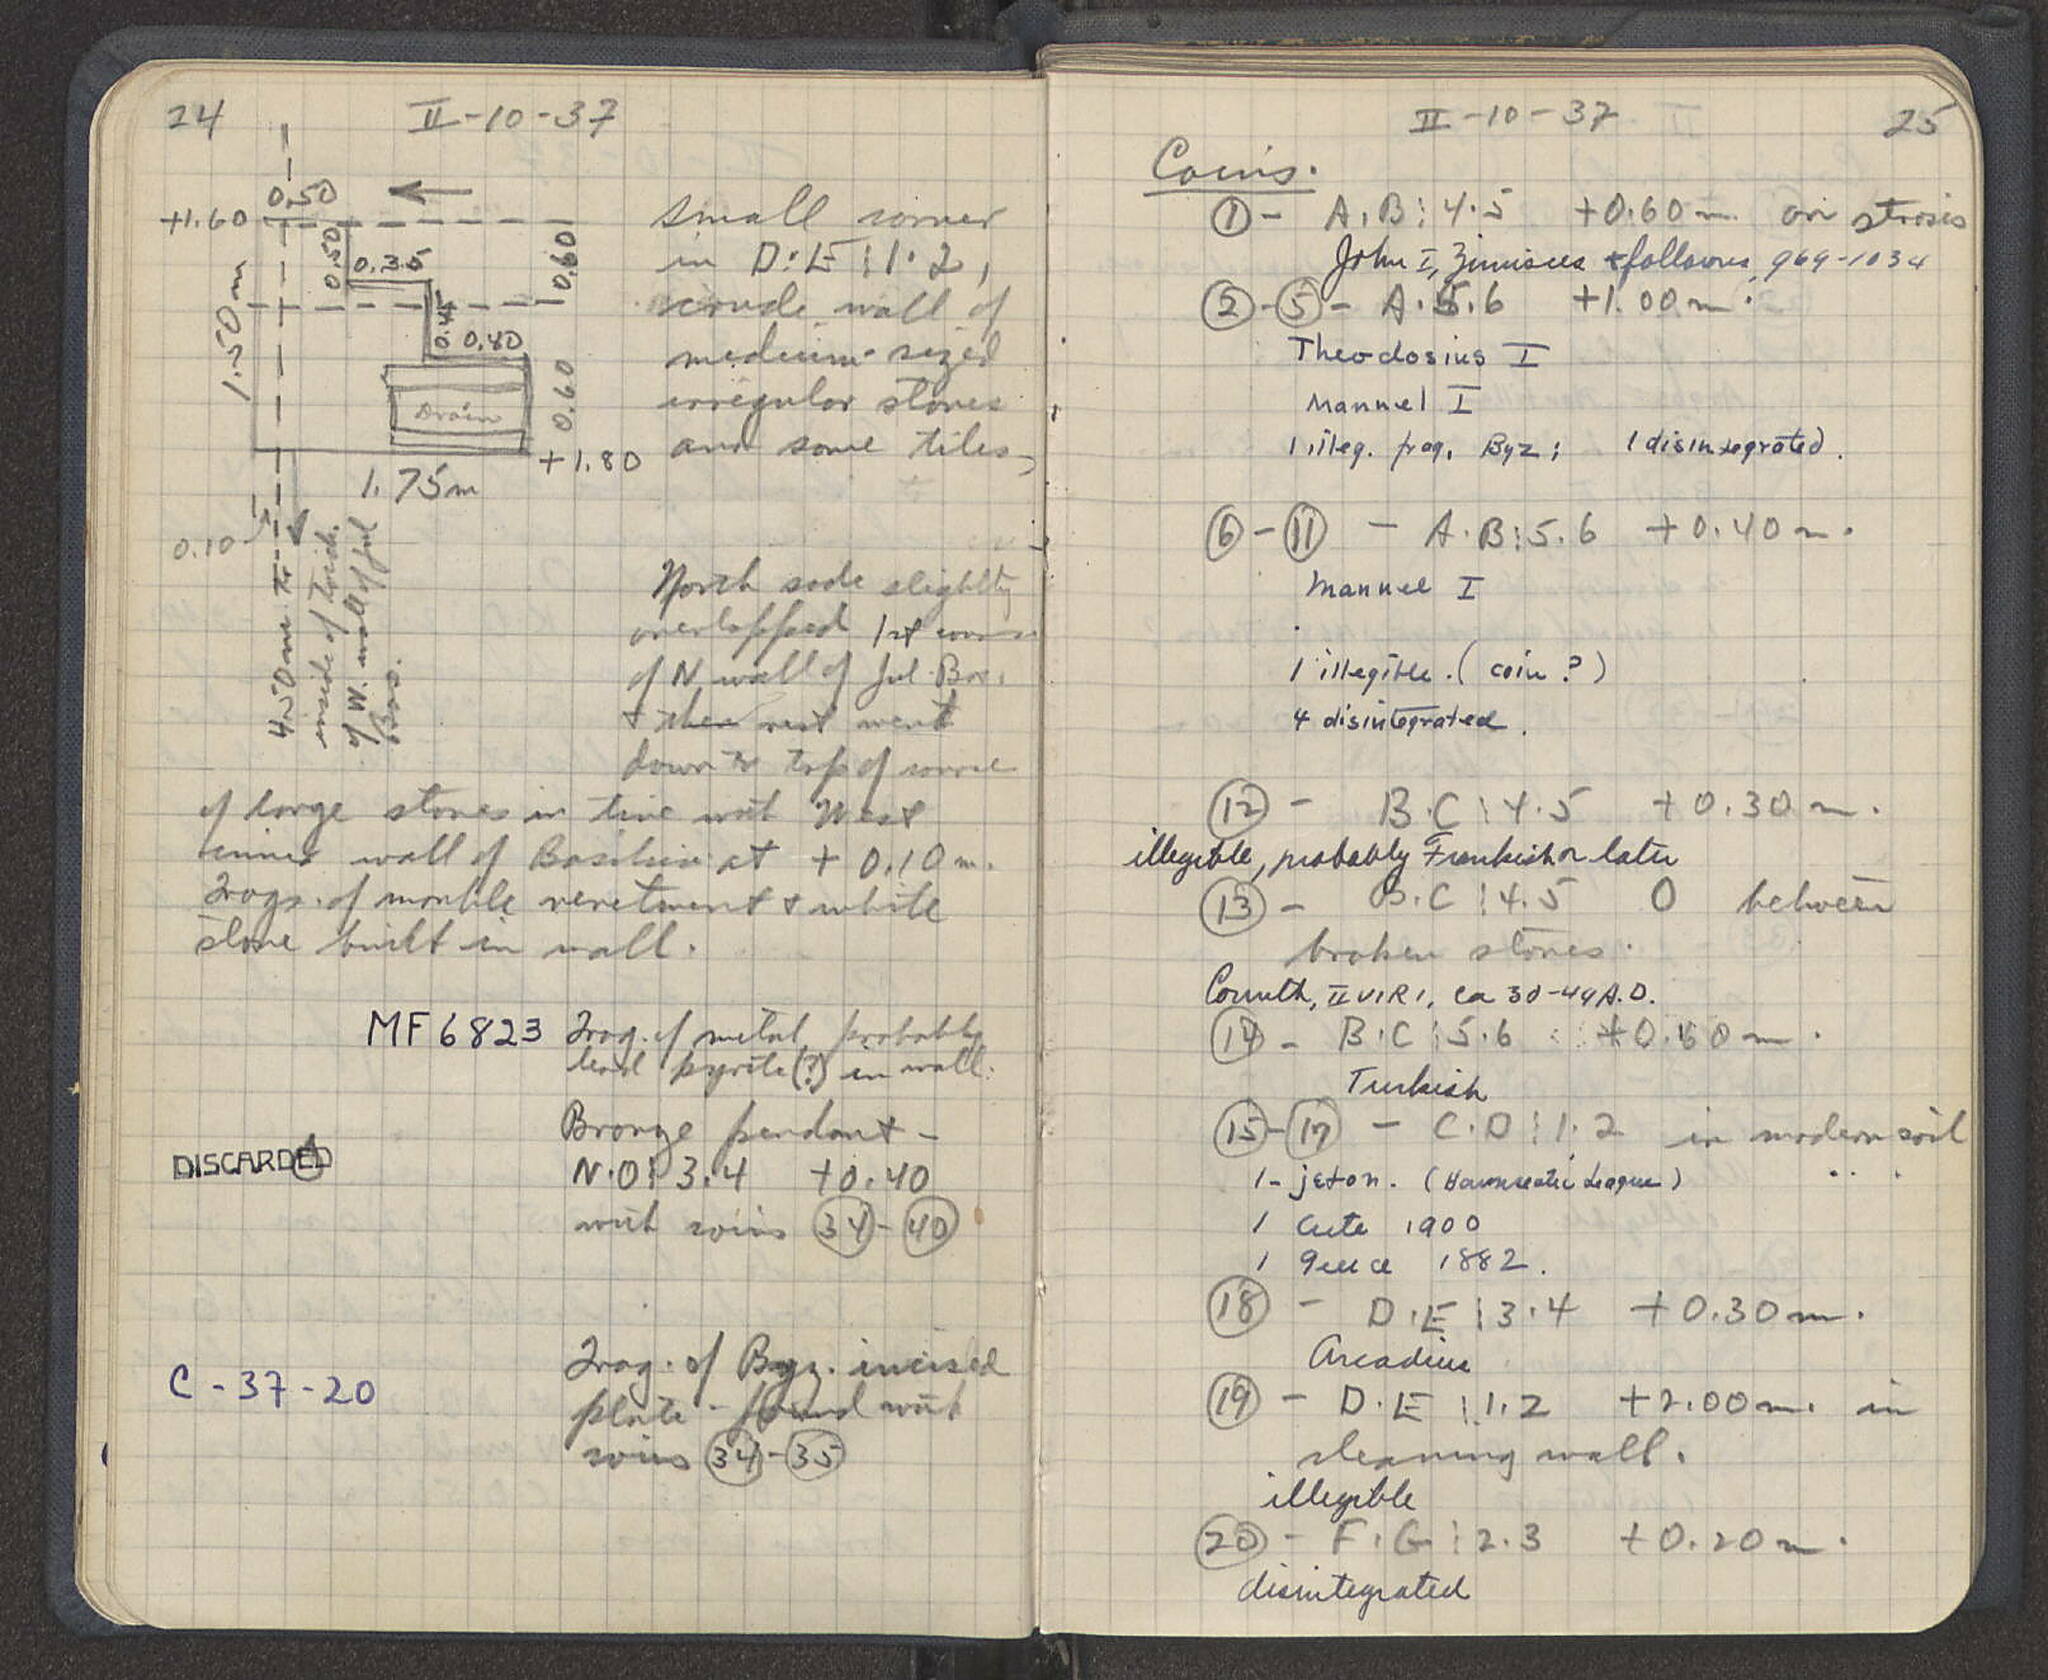 24
II-10-37
+1.60
0.50
0.50
0.35
0.60
1.50m
0.45
0.80
Drain
0.60
+1.80
1.75m
0.10
4.50m to
inside of
of W. wall of Jul
Bas.
small corner
in D.E:1.2,
crude wall of
medium-sized
irregular stones
and some tiles,
North side slightly
overlapped 1st course
of N wall of Jul. Bas.
+ then rest went
down to top of course
of large stones in line with West
inner wall of Basilica at +0.10m.
Frags. of marble revetment + white
stone built in wall.
MF6823 Frag. of metal, probably
lead pyrite(?) in wall.
Bronze pendant -
DISCARDED
N.O:3.4 +0.40
with coins 34-40
Frag. of Byz. incised
C-37-20
plate - found with
coins 34-35
II-10-37
25
Coins.
1 - A.B:4.5 +0.60m. on strosis
John I, Zimisces + follows, 969-1034
2-5 - A.5.6 +1.00m.
Theodosius I
Manuel I
1 illeg. frag. Byz; 1 disintegrated.
6-11 - A.B:5.6 +0.40m.
Manuel I
1 illegible. (coin?)
4 disintegrated.
12 - B.C:4.5 +0.30m.
illegible, probably Frankish or later
13 - B.C:4.5 0 between
broken stones.
Corinth, II VIRI, ca 30-49 A.D.
14 - B.C:5.6 +0.60m.
Turkish
15-17 - C.D:1.2 in modern soil
1- jeton. (Hanseatic League)
1 Crete 1900
1 Greece 1882.
18 - D.E:3.4 +0.30m.
Arcadius
19 - D.E:1.2 +2.00m. in
cleaning wall.
illegible
20 - F.G:2.3 +0.20m.
disintegrated